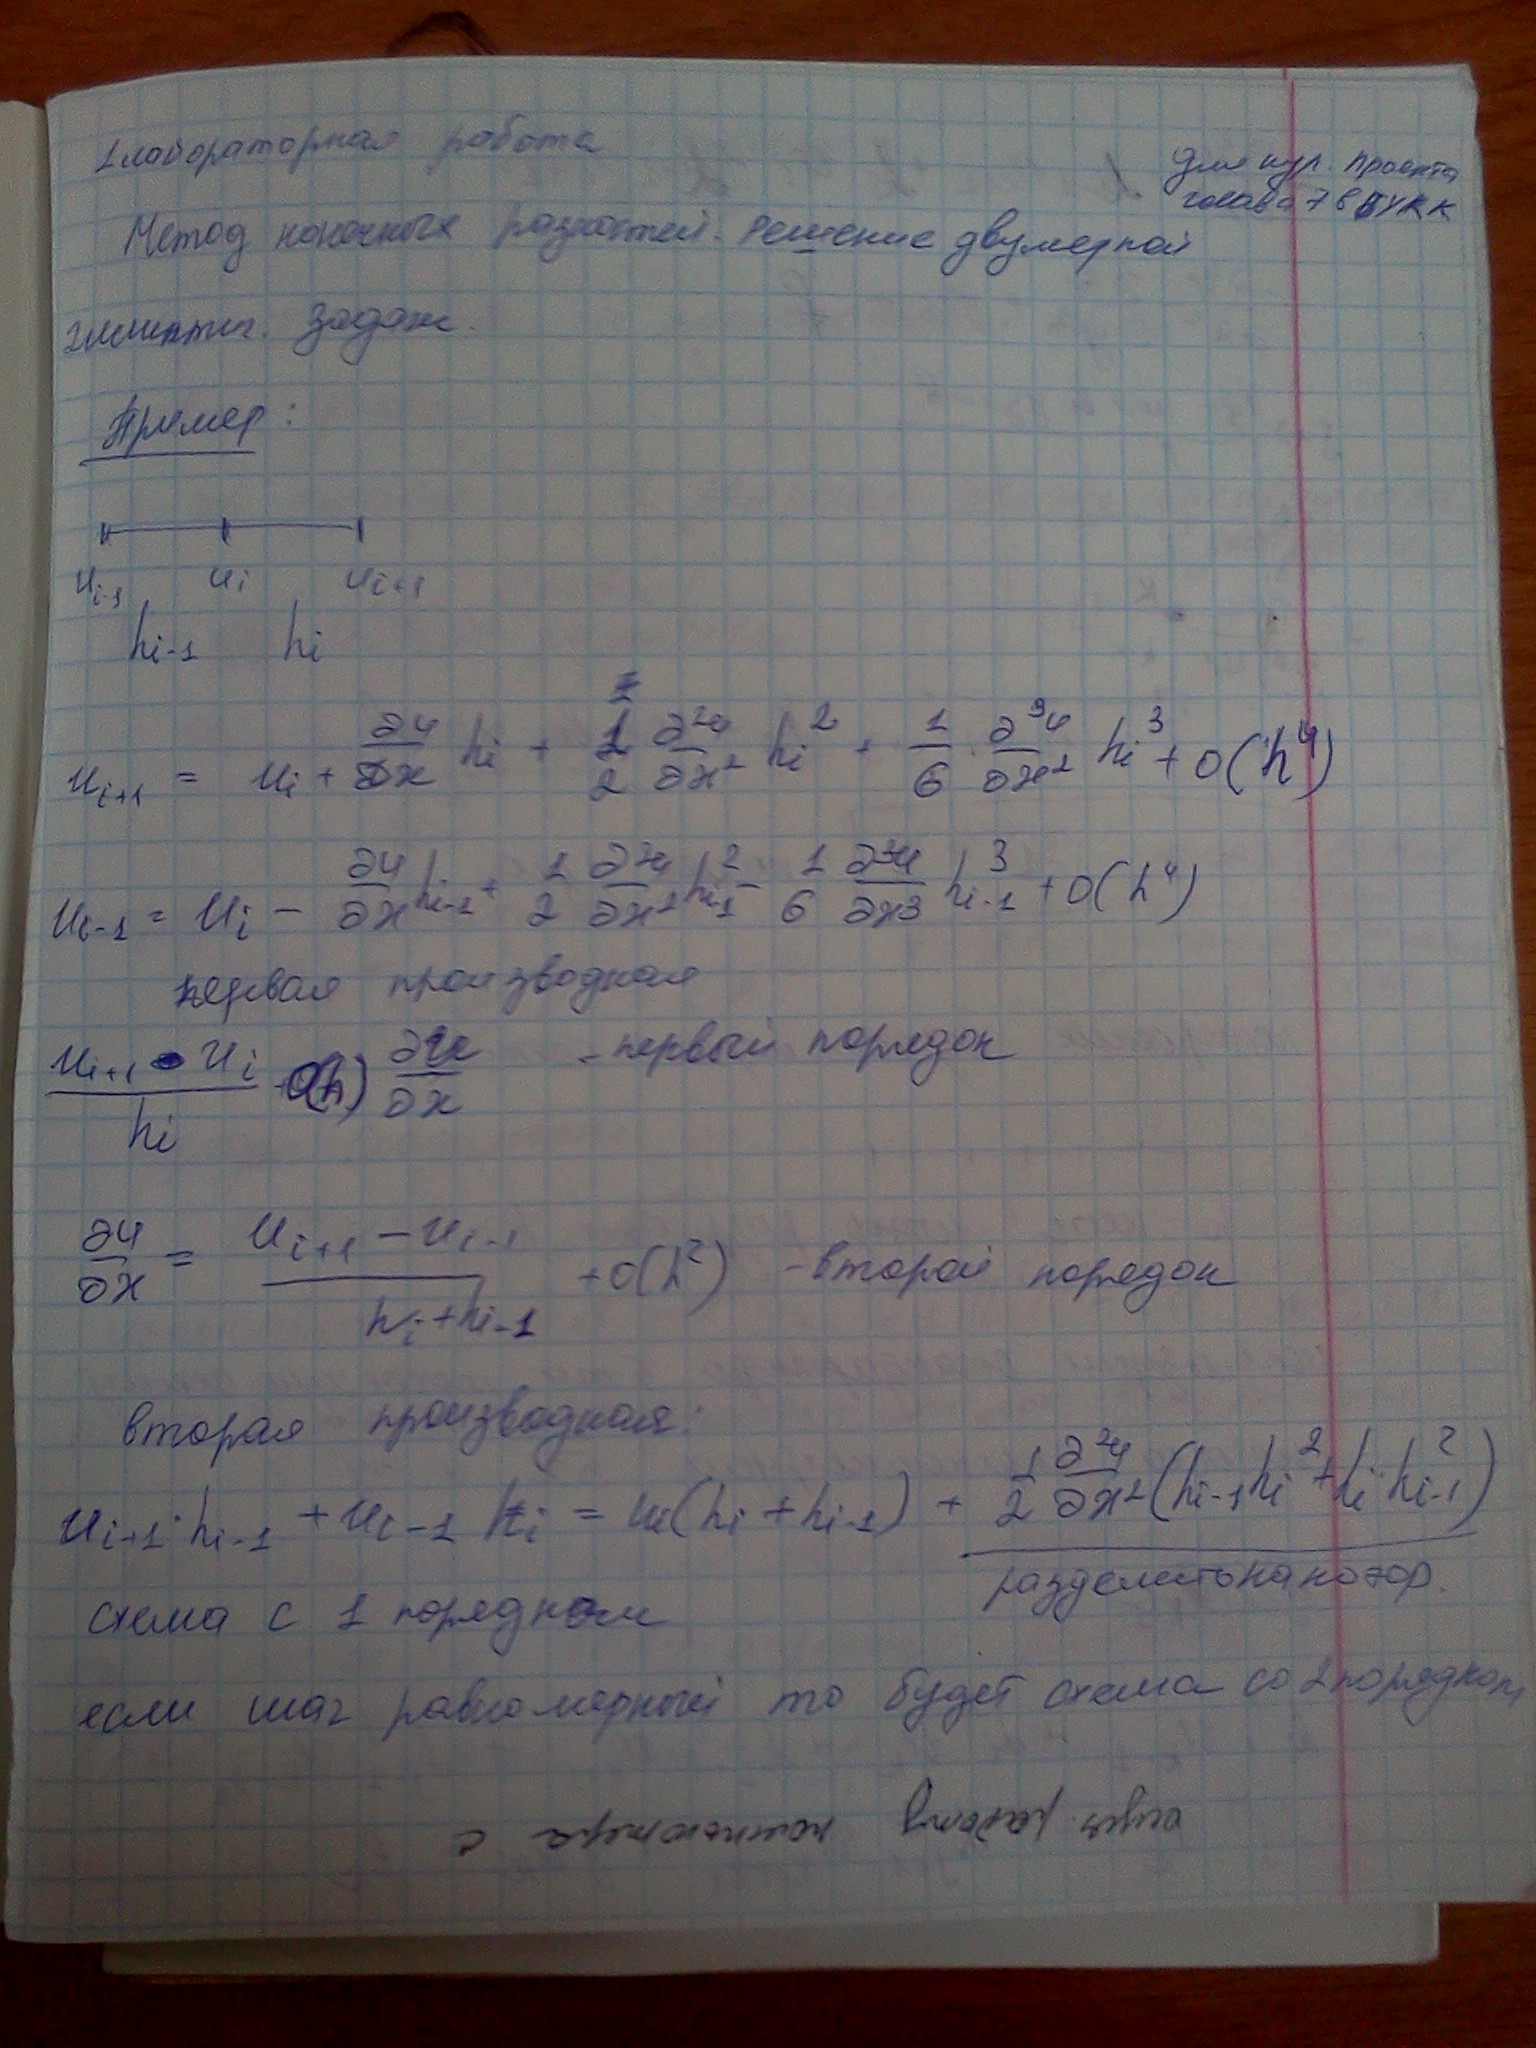 1 лабораторная работа
для кур. проекта
глава 7 в БУКК
Метод конечных разностей. Решение двумерной
эллиптич. задач.
Пример:
u_{i-1} u_i u_{i+1}
h_{i-1} h_i
u_{i+1} = u_i + ∂u/∂x h_i + 1/2 ∂²u/∂x² h_i² + 1/6 · ∂³u/∂x² h_i³ + O(h⁴)
u_{i-1} = u_i − ∂u/∂x h_{i-1} + 1/2 ∂²u/∂x² h_{i-1}² − 1/6 ∂³u/∂x3 h_{i-1}³ + O(h⁴)
первая производная
(u_{i+1} - u_i)/h_i O(h) ∂u/∂x - первый порядок
∂u/∂x = (u_{i+1} − u_{i-1})/(h_i + h_{i-1}) + O(h²) - второй порядок
вторая производная:
u_{i+1} · h_{i-1} + u_{i-1} h_i = u_i(h_i + h_{i-1}) + 1/2 ∂²u/∂x² (h_{i-1} h_i² + h_i h_{i-1}²)
разделить на коэф.
схема с 1 порядком
если шаг равномерный то будет схема со 2 порядком
компьютера с